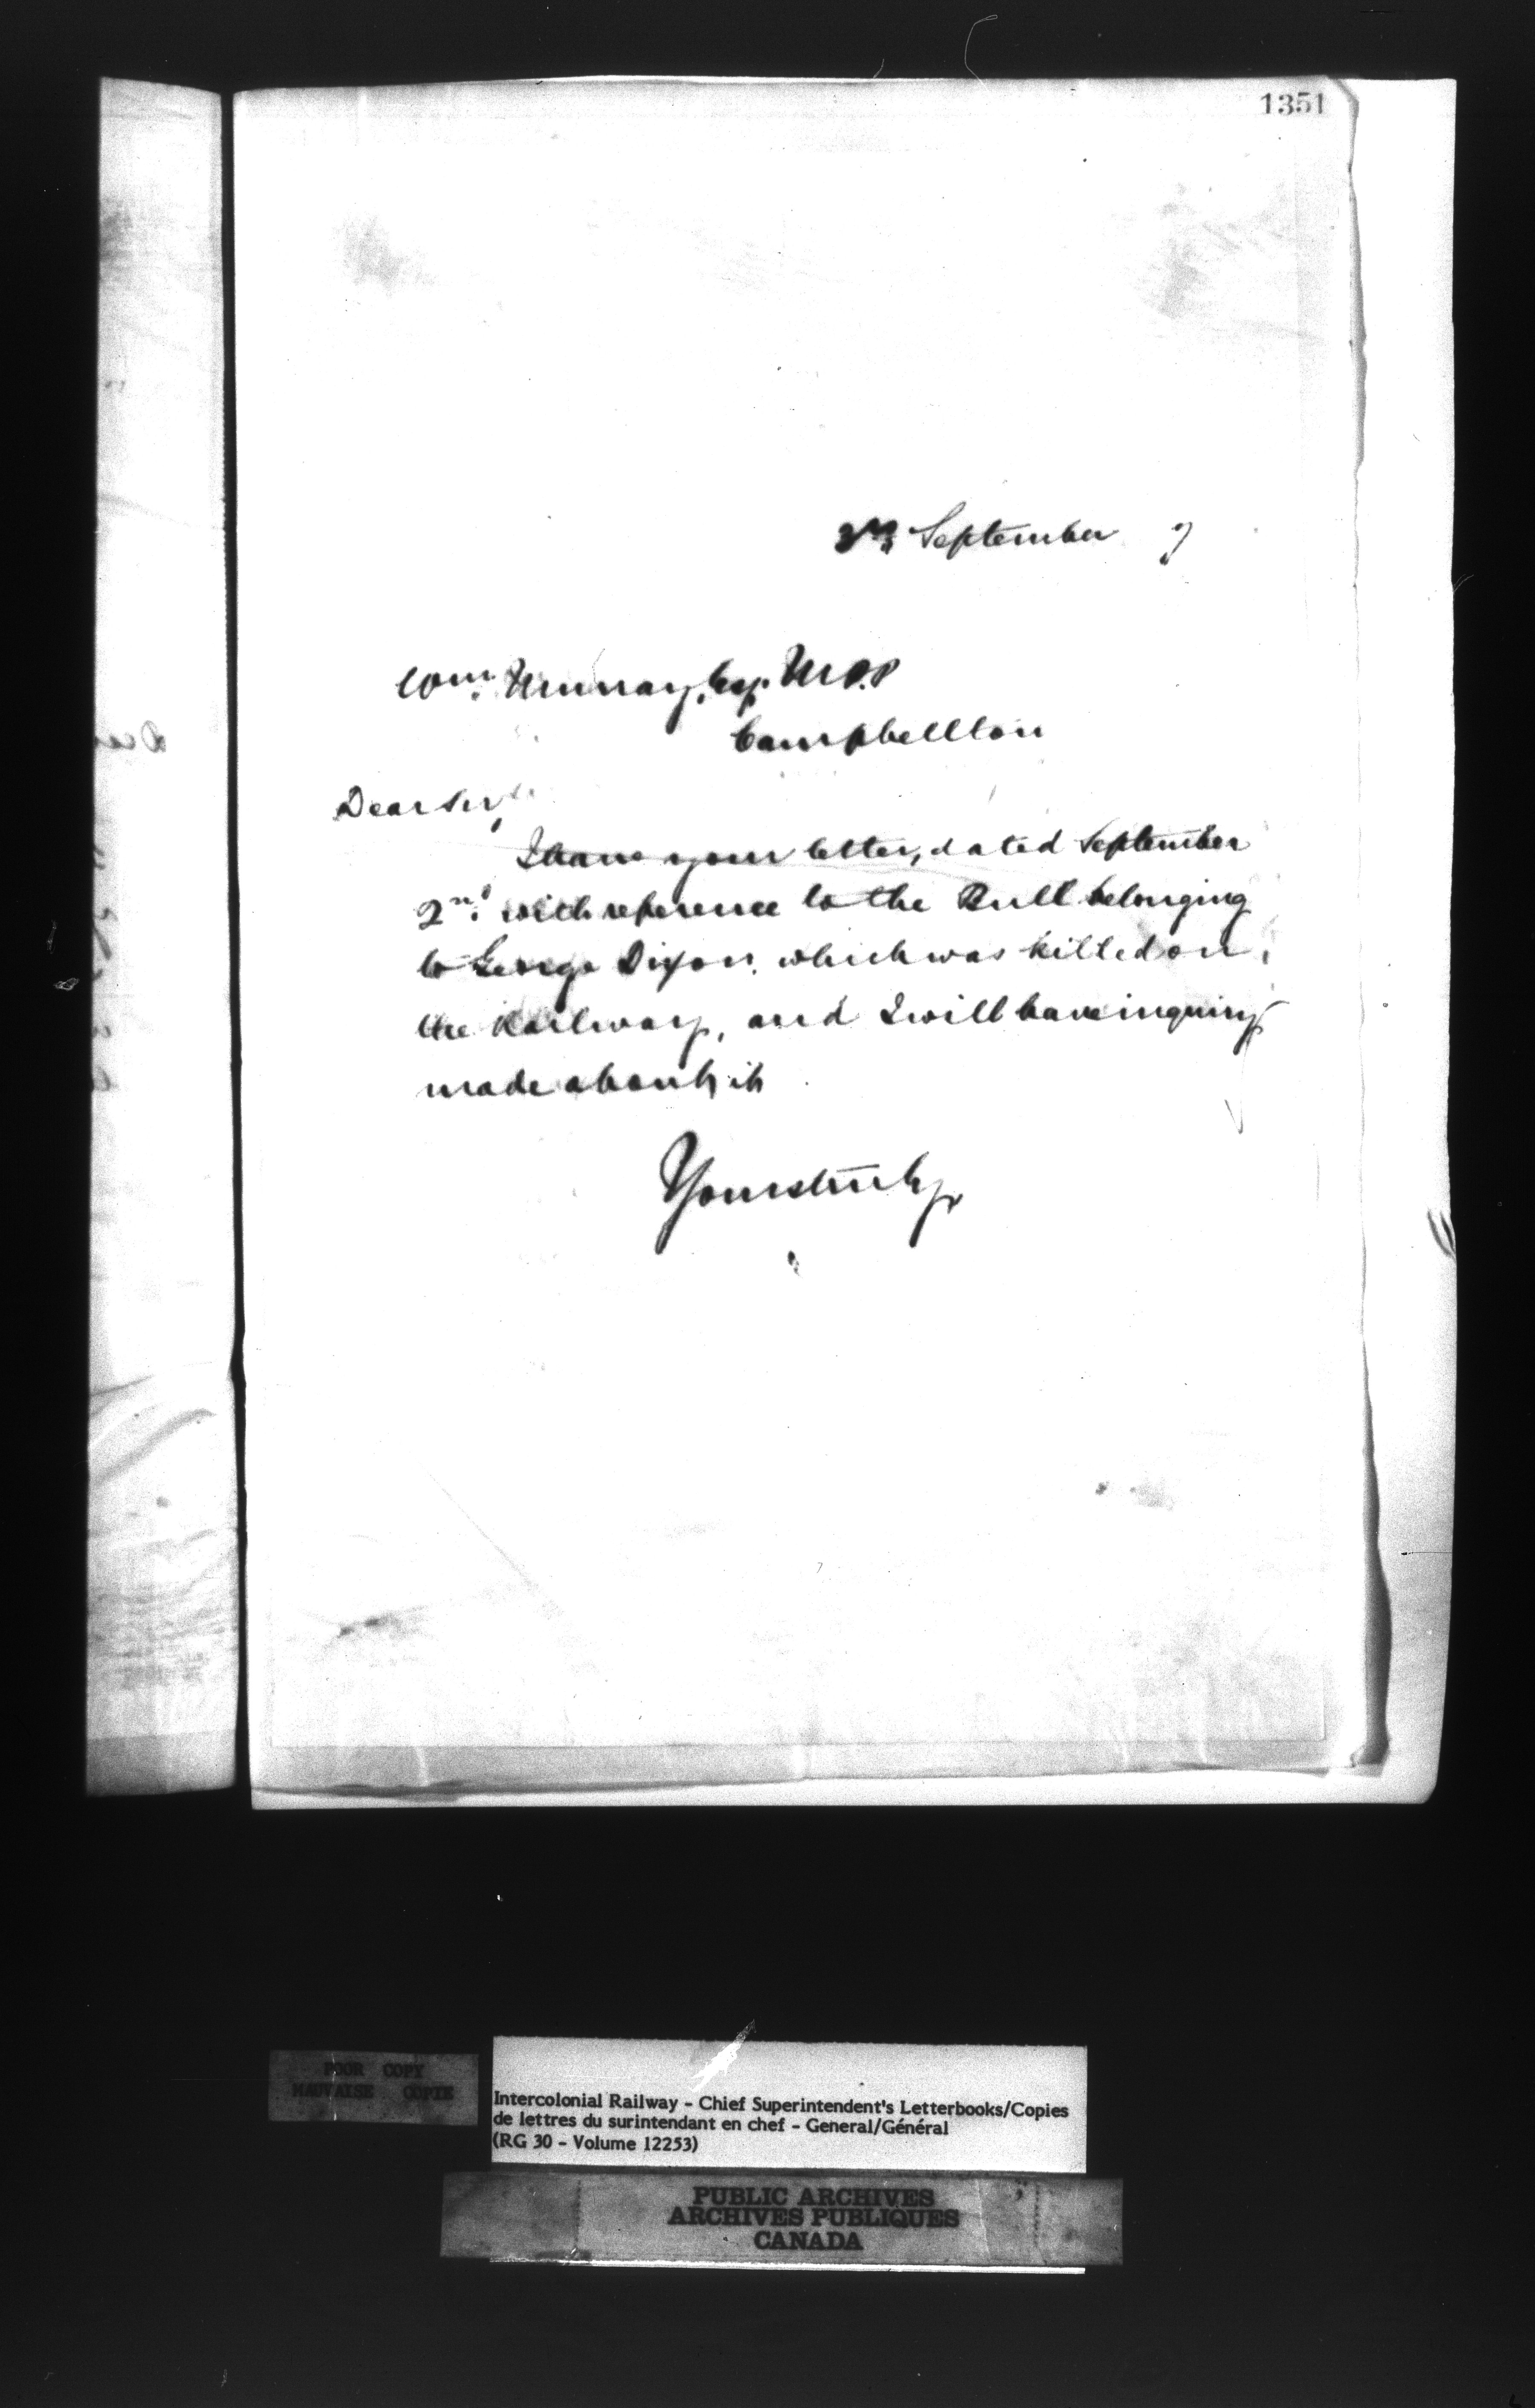 1351
September 7
Wm. Murray, Esq. M.P.P
Campbellton
Dear Sir,
I have your letter, dated September
2nd. with reference to the Bull belonging
to George Dixon. which was killed on
the Railway, and I will have inquiry
made about it
Yours truly
POOR COPY
MAUVAISE COPIE
Intercolonial Railway - Chief Superintendent's Letterbooks/Copies
de lettres du surintendant en chef - General/Général
(RG 30 - Volume 12253)
PUBLIC ARCHIVES
ARCHIVES PUBLIQUES
CANADA